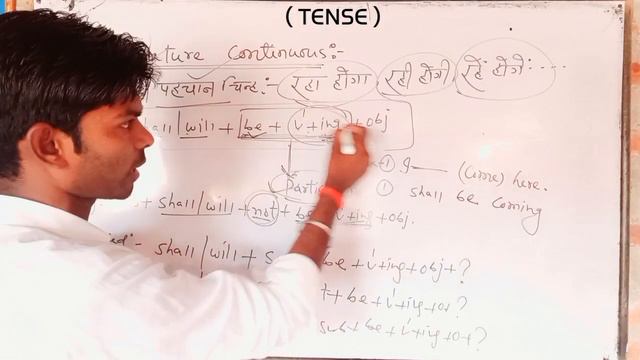 ( TENSE )
ture Continuous:-
पहचान चिन्ह :- रहा होगा रही होगी रहें होंगें ....
all | will + be + v¹+ing + obj
① I —— (come) here.
Parti ① shall be coming
+ shall/will + not + be + v+ing + obj.
:- shall/will + s be + v¹+ing + obj + ?
+ be + v¹+ing + o+ ?
sub + be + v¹+ing + o+ ?